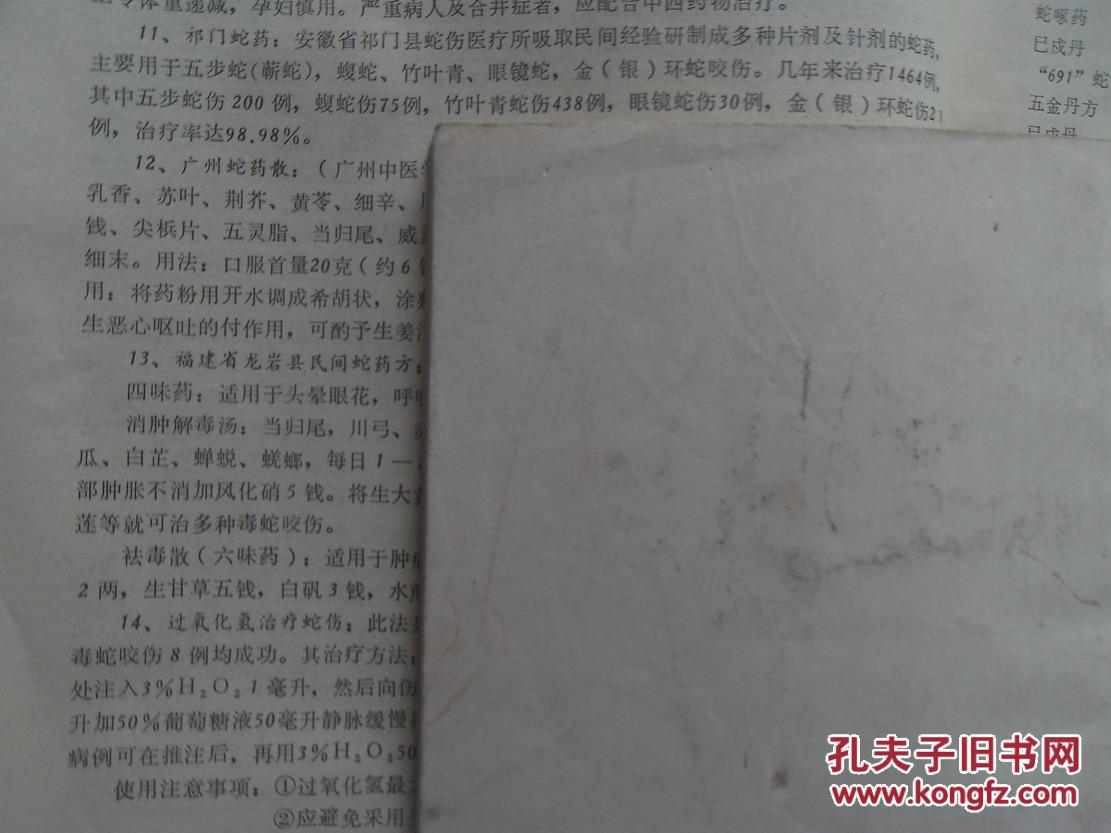 体重递减，孕妇慎用。严重病人及合并症者，应配合中西药物治疗。
11、祁门蛇药：安徽省祁门县蛇伤医疗所吸取民间经验研制成多种片剂及针剂的蛇药，
主要用于五步蛇(蕲蛇)，蝮蛇、竹叶青、眼镜蛇，金（银）环蛇咬伤。几年来治疗1464例，
其中五步蛇伤200例，蝮蛇伤75例，竹叶青蛇伤438例，眼镜蛇伤30例，金（银）环蛇伤21
例，治疗率达98.98%。
12、广州蛇药散：（广州中医
乳香、苏叶、荆芥、黄苓、细辛、
钱、尖梹片、五灵脂、当归尾、威
细末。用法：口服首量20克（约6
用：将药粉用开水调成希胡状，涂
生恶心呕吐的付作用，可酌予生姜
13、福建省龙岩县民间蛇药方：
四味药：适用于头晕眼花，呼
消肿解毒汤：当归尾，川弓、
瓜、白芷、蝉蜕、蜣螂，每日1—
部肿胀不消加风化硝5钱。将生大
莲等就可治多种毒蛇咬伤。
祛毒散（六味药）：适用于肿
2两，生甘草五钱，白矾3钱，水
14、过氧化氢治疗蛇伤：此法
毒蛇咬伤8例均成功。其治疗方法：
处注入3%H₂O₂1毫升，然后向伤
升加50%葡萄糖液50毫升静脉缓慢
病例可在推注后，再用3%H₂O₂50
使用注意事项：①过氧化氢最
②应避免采用
蛇啄药
巳成丹
“691”蛇
五金丹方
巳成丹
孔夫子旧书网
www.kongfz.com